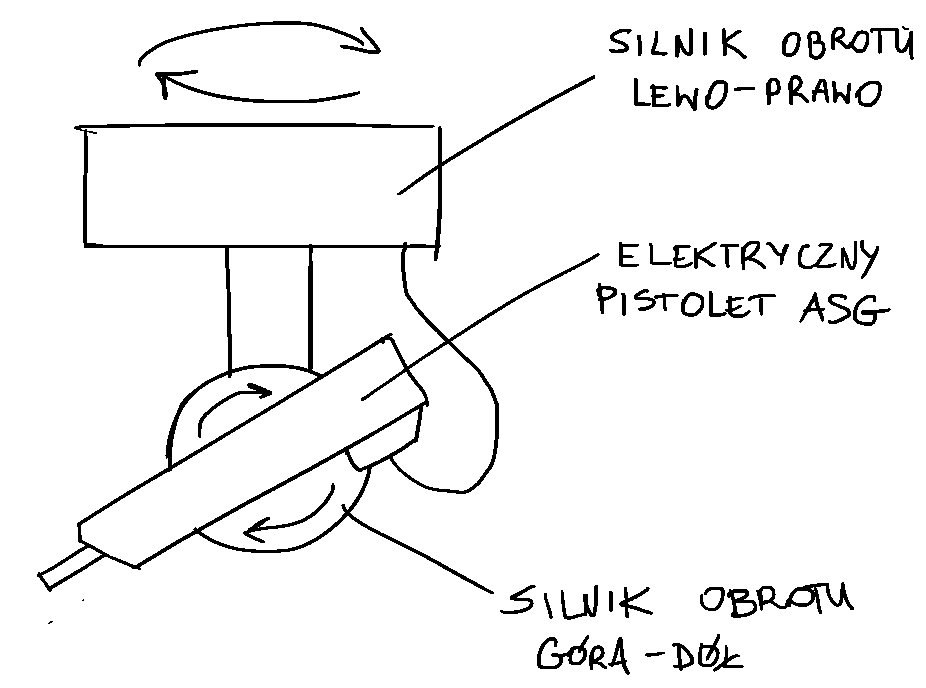 SILNIK OBROTU
LEWO-PRAWO
ELEKTRYCZNY
PISTOLET ASG
SILNIK OBROTU
GÓRA-DÓŁ